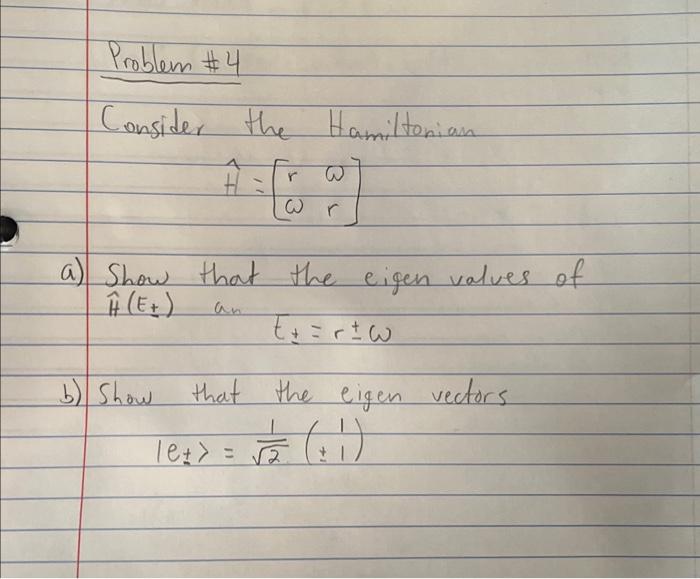 Problem #4
Consider the Hamiltonian
Ĥ = [r ω
ω r]
a) Show that the eigen values of
Ĥ (E±) an
E± = r ± ω
b) Show that the eigen vectors
|e±> = 1/√2 (1
± 1)